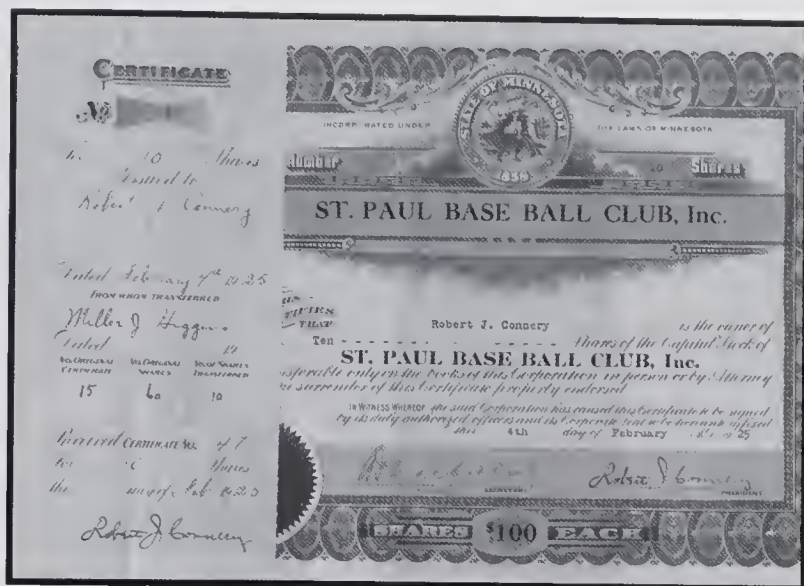 CERTIFICATE
No
for 10 Shares
Issued to
Robert J Connery
Dated February 4th 1925
FROM WHOM TRANSFERRED
Miller J Huggins
Dated 19
NO. ORIGINAL CERTIFICATE NO. ORIGINAL SHARES NO. OF SHARES TRANSFERRED
15 60 10
Received CERTIFICATE NO.
for Shares
the day of Feb 1925
Robert J Connery
STATE OF MINNESOTA
1858
INCORPORATED UNDER THE LAWS OF MINNESOTA
Number 10 Shares
ST. PAUL BASE BALL CLUB, Inc.
THIS CERTIFIES THAT
Robert J. Connery is the owner of
Ten - - - - - - - - - - - Shares of the Capital Stock of
ST. PAUL BASE BALL CLUB, Inc.
nsferable only on the books of this Corporation in person or by Attorney
surrender of this Certificate properly endorsed
IN WITNESS WHEREOF the said Corporation has caused this Certificate to be signed
by its duly authorized officers and its Corporate Seal to be hereunto affixed
this 4th day of February A.D. 1925
Robert J Connery
SECRETARY PRESIDENT
SHARES $100 EACH